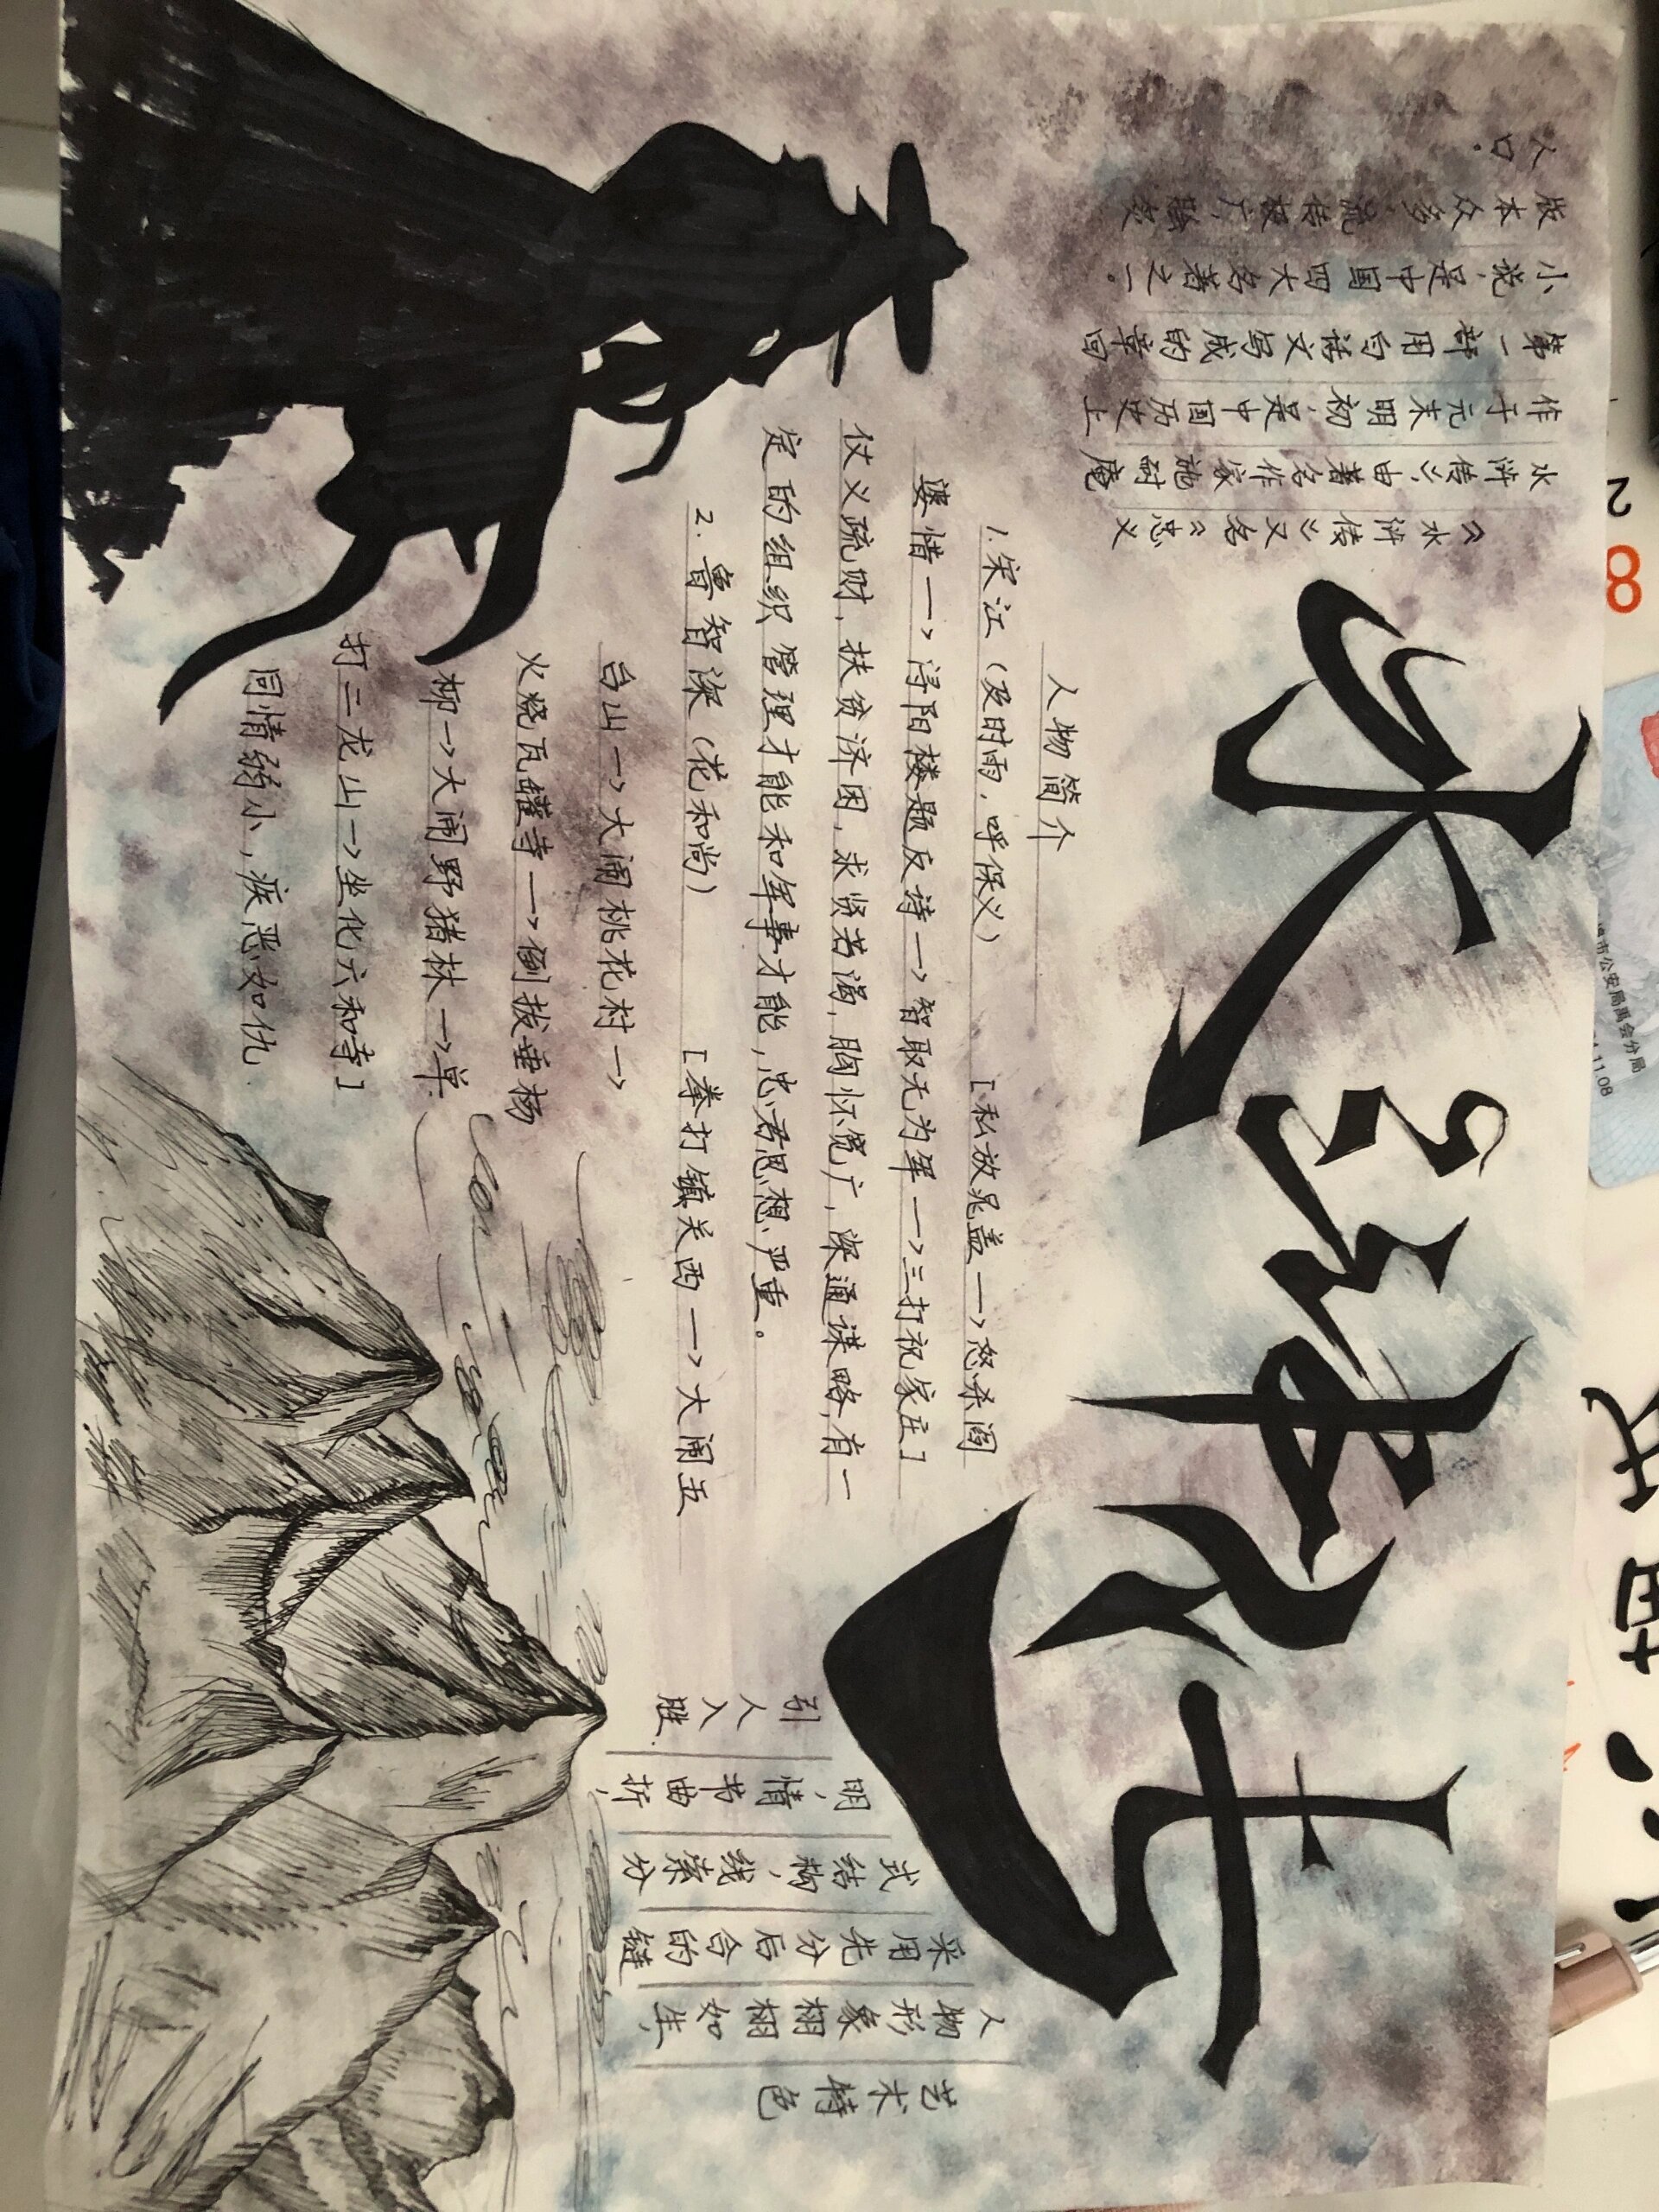 水浒传
《水浒传》又名《忠义
水浒传》,由著名作家施耐庵
作于元末明初,是中国历史上
第一部用白话文写成的章回
小说,是中国四大名著之一。
版本众多,流传极广,脍炙
人口。
人物简介
1.宋江(及时雨,呼保义) [私放晁盖一→怒杀阎
婆惜一→浔阳楼题反诗一→智取无为军一→三打祝家庄]
仗义疏财,扶贫济困,求贤若渴,胸怀宽广,深通谋略,有一
定的组织管理才能和军事才能,忠君思想严重。
2.鲁智深(花和尚) [拳打镇关西一→大闹五
台山一→大闹桃花村一→
火烧瓦罐寺一→倒拔垂杨
柳一→大闹野猪林一→单
打二龙山一→坐化六和寺]
同情弱小,疾恶如仇.
艺术特色
人物形象栩栩如生,
采用先分后合的链
式结构,线索分
明,情节曲折,
引人入胜.
市公安局禹会分局
11.08
2
8